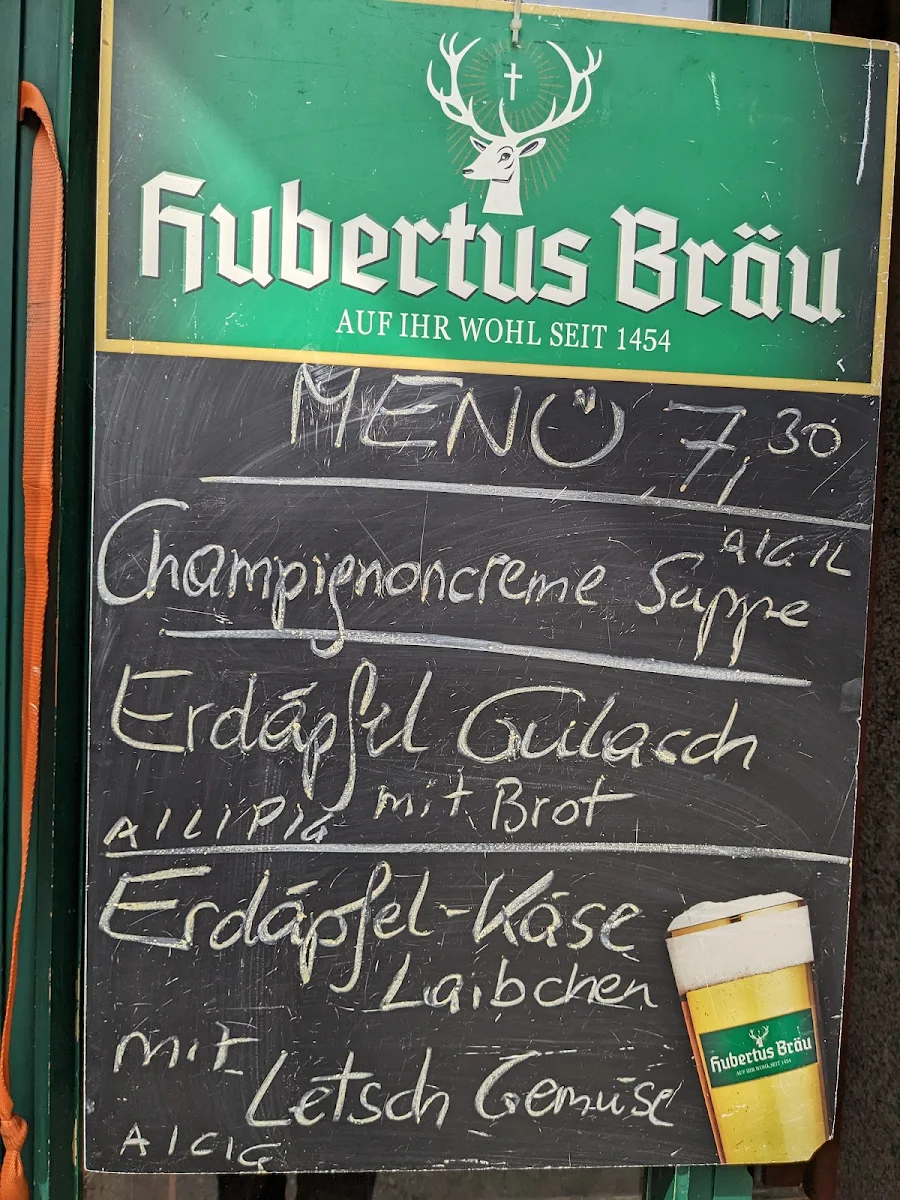 Hubertus Bräu
AUF IHR WOHL SEIT 1454
MENÜ 7,30
A|C|L
Champignoncreme Suppe
Erdäpfel Gulasch
mit Brot
A|L|P|G
Erdäpfel-Käse
Laibchen
mit
Letscho Gemüse
A|C|G
Hubertus Bräu
AUF IHR WOHL SEIT 1454